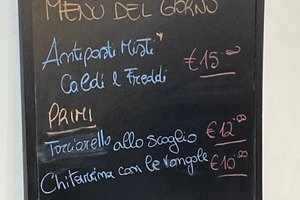 MENU DEL GIORNO
Antipasti Misti
Caldi e Freddi €15,00
PRIMI
Torciarello allo scoglio €12,00
Chitarrina con le vongole €10,00